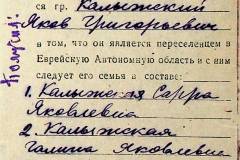 ся гр. Калыжский
Яков Григорьевич
в том, что он является переселенцем в
Еврейскую Автономную область и с ним
следует его семья в составе:
1. Калыжская Сарра
Яковлевна
2. Калыжская
Галина Яковлевна